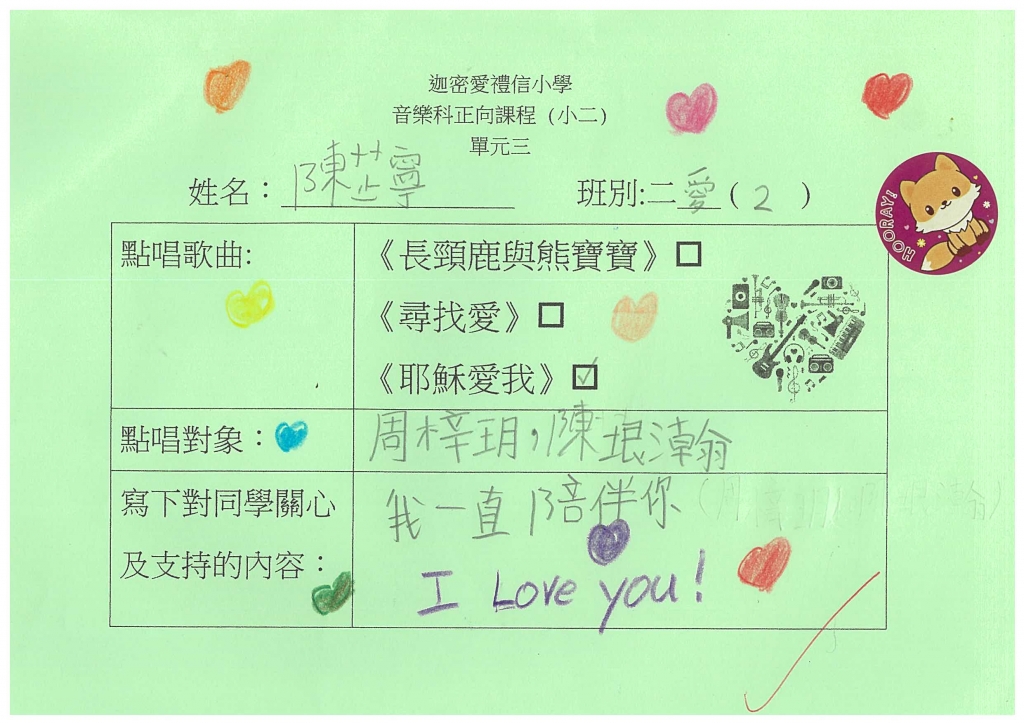 迦密愛禮信小學
音樂科正向課程 (小二)
單元三
姓名：陳芷寧 班別:二愛(2)
HOORAY!
點唱歌曲:
《長頸鹿與熊寶寶》☐
《尋找愛》☐
《耶穌愛我》☑
點唱對象： 周梓玥，陳垠瀚
寫下對同學關心
及支持的內容：
我一直陪伴你
I Love you!